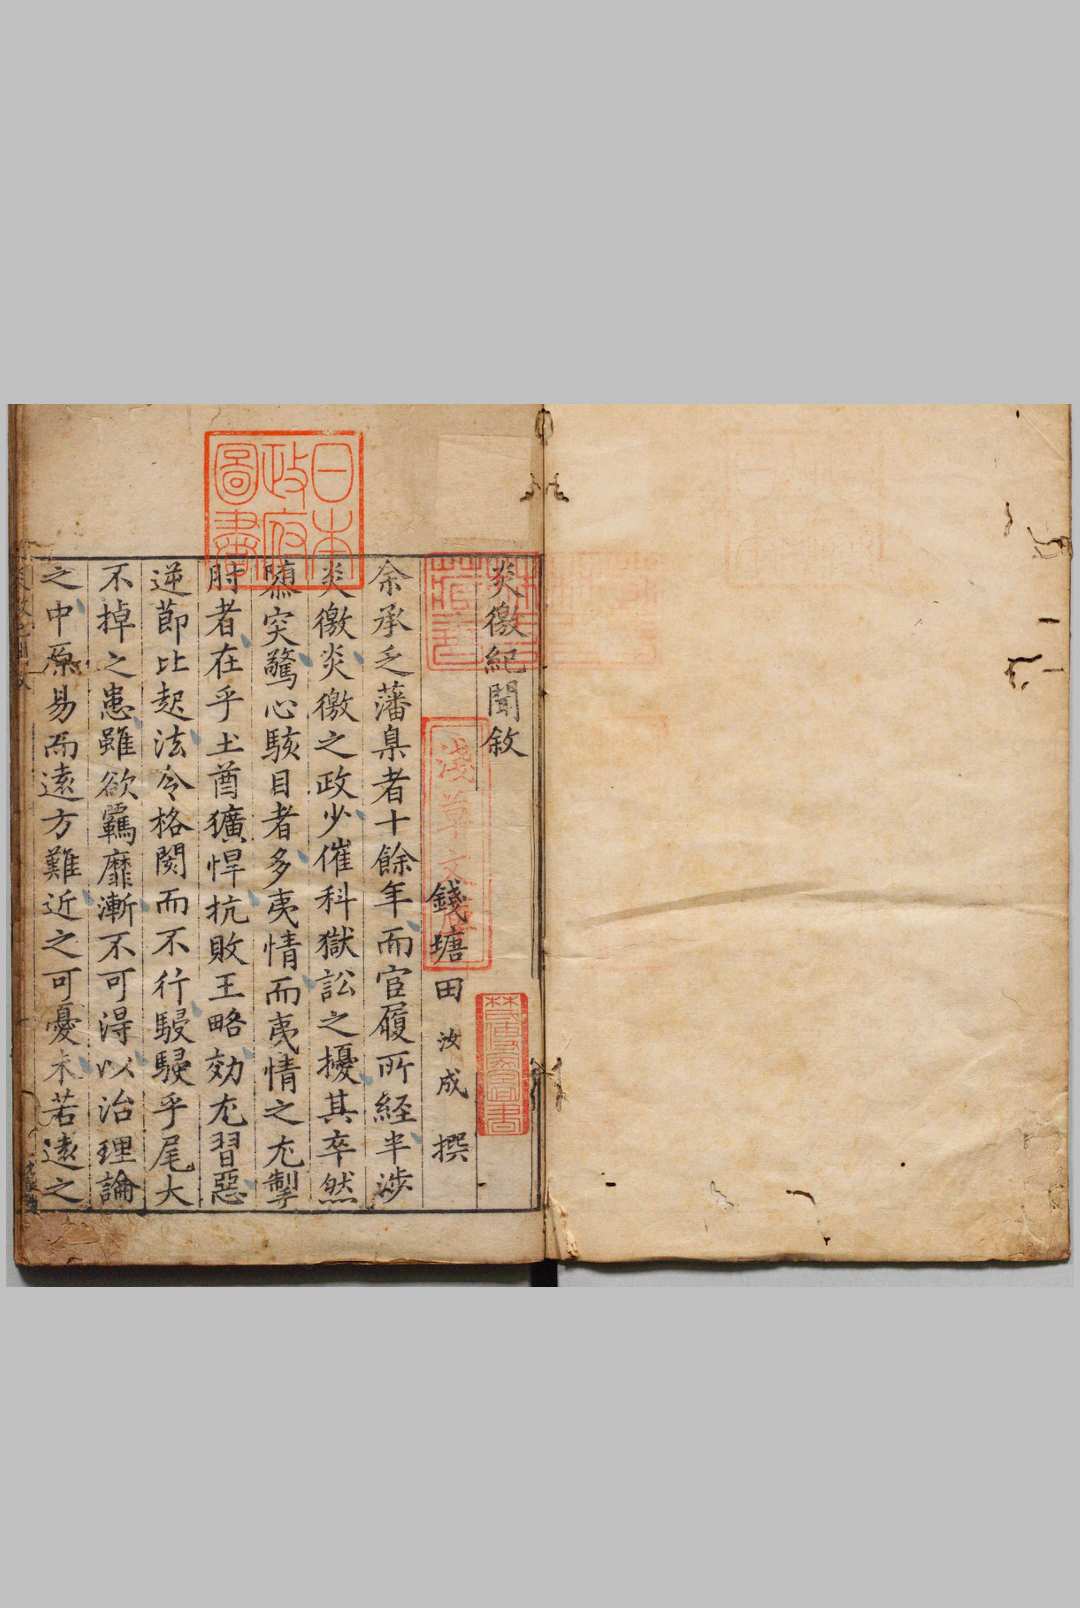 炎徼紀聞敘
錢塘田汝成撰
余承乏藩臬者十餘年而宦履所經半涉
炎徼炎徼之政少催科獄訟之擾其卒然
隳突驚心駭目者多夷情而夷情之尤掣
肘者在乎土酋獷悍抗敗王略効尤習惡
逆節比起法令格閡而不行駸駸乎尾大
不掉之患雖欲羈靡漸不可得以治理論
之中原易而遠方難近之可憂未若遠之
日本
政府
圖書
淺草文庫
林氏
藏書